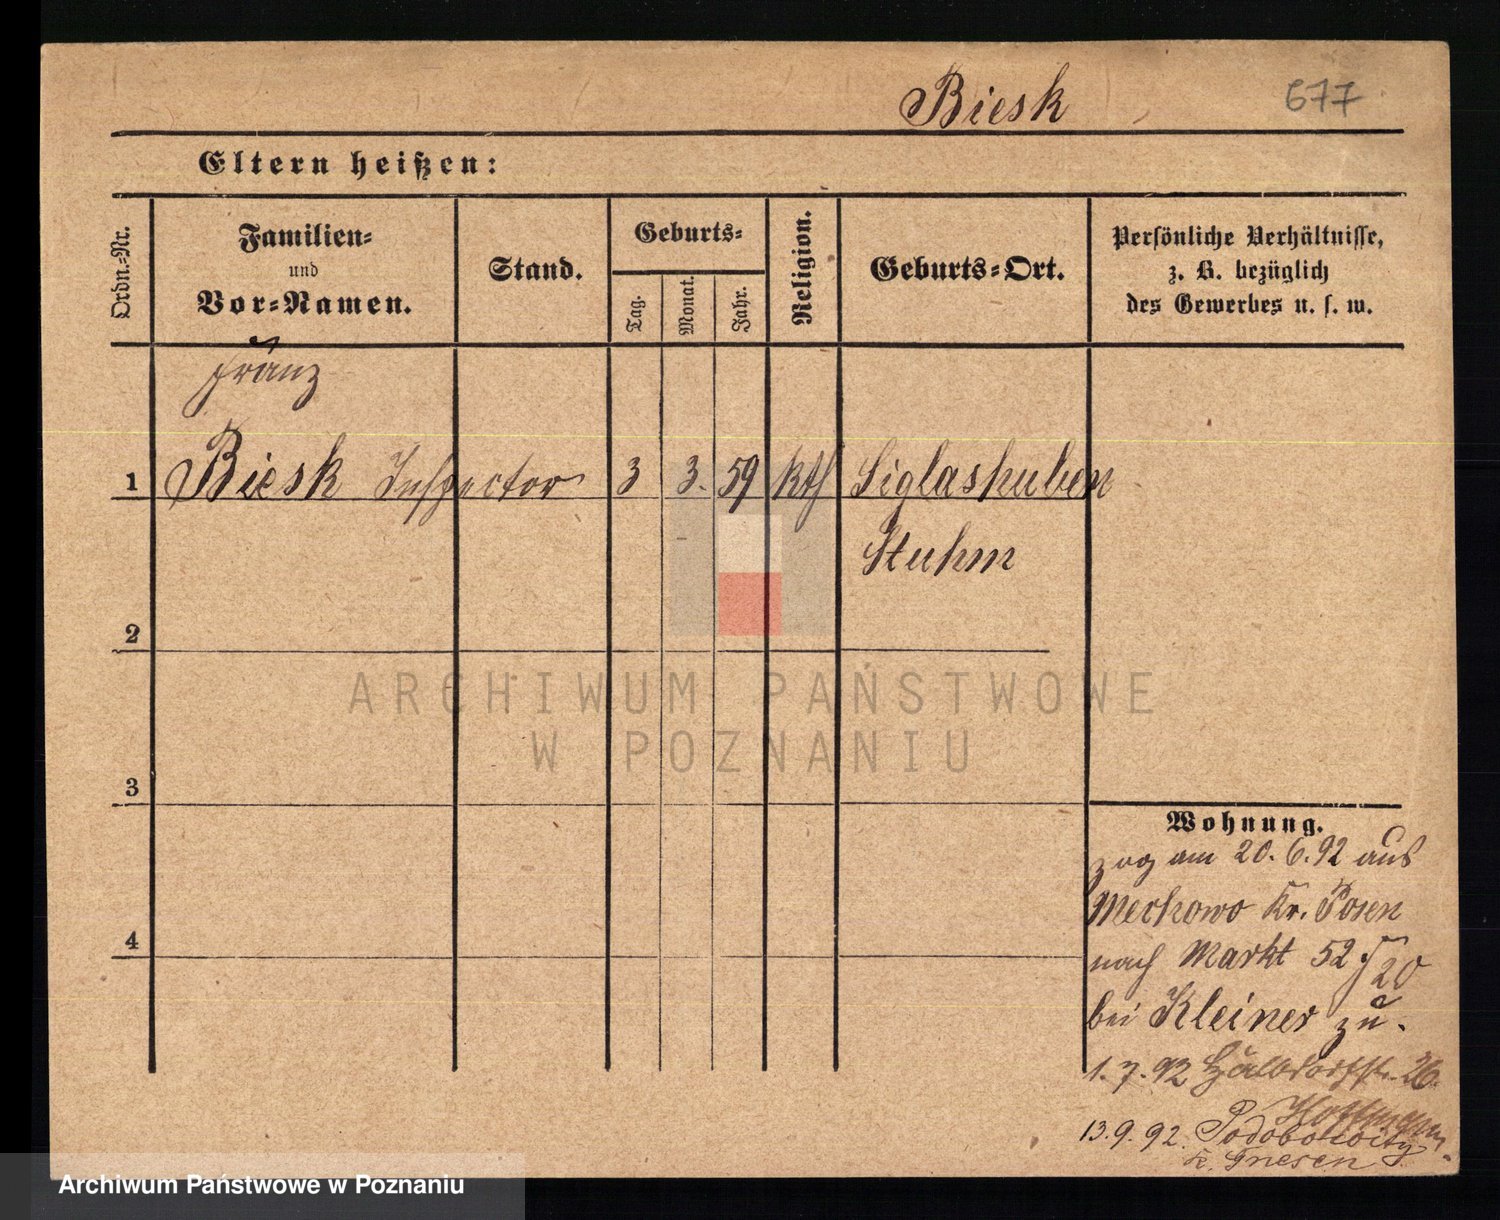 Biesk
677
Eltern heißen:
Ordn.-Nr.
Familien-
und
Vor-Namen.
Stand.
Geburts-
Tag.
Monat.
Jahr.
Religion.
Geburts-Ort.
Persönliche Verhältnisse,
z. B. bezüglich
des Gewerbes u. s. w.
Franz
1 Biesk Inspector 3 3. 59 kth Siglashuben
Stuhm
2
3
4
Wohnung.
zog am 20.6.92 aus
Mechowo Kr. Posen
nach Markt 52
20
bei Kleiner zu.
1.7.92 Halbdorfstr. 26.
Hoffmann
13.9.92.
Gnesen
ARCHIWUM PAŃSTWOWE
W POZNANIU
Archiwum Państwowe w Poznaniu